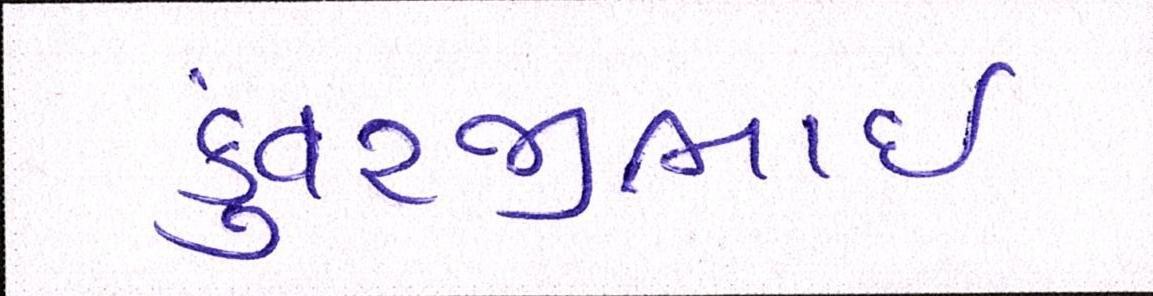 કુંવરજીભાઈ